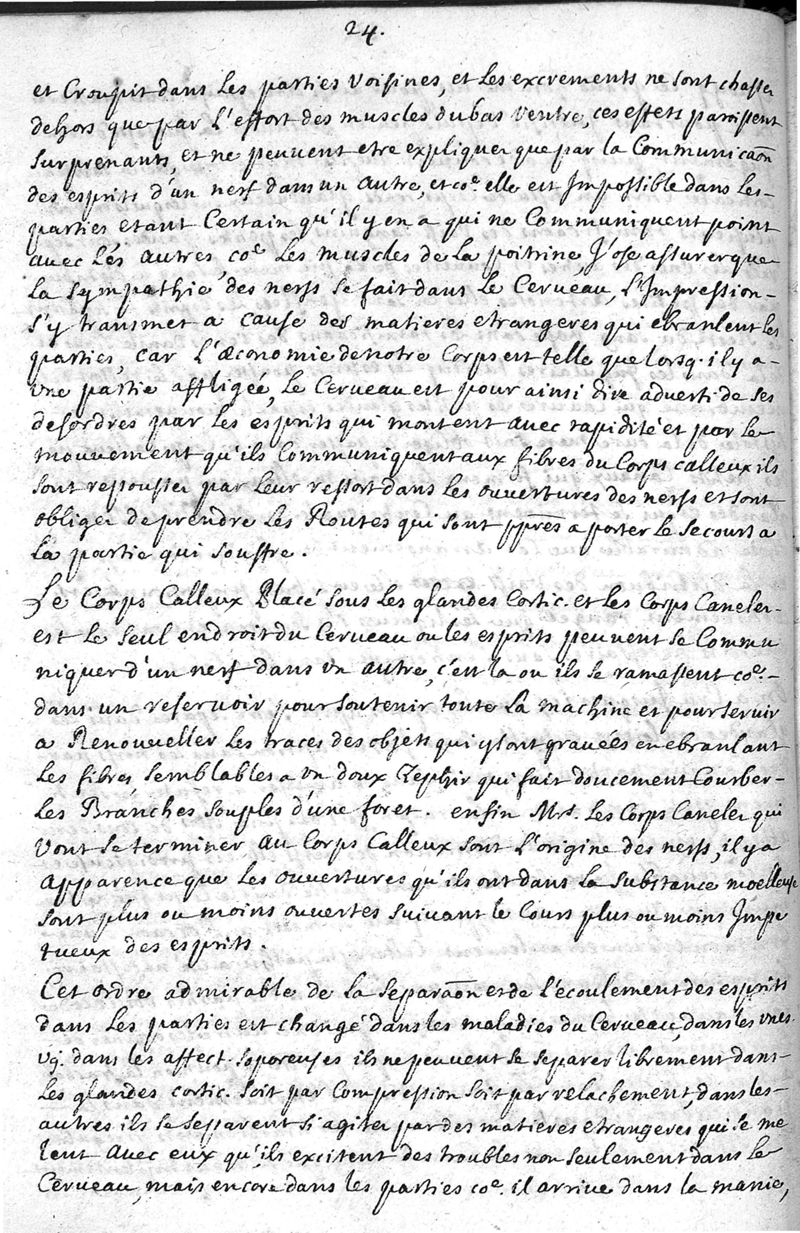 24.
et Croupit dans les parties voisines, et les excrements ne sont chasser
dehors que par l'effort des muscles du bas ventre, ces effets paroissent
surprenants, et ne peuvent etre expliquer que par la Communicaõn
des esprits d'un nerf dans un autre, et coe. elle est Impossible dans les-
parties etant Certain qu'il y en a qui ne Communiquent point
avec les autres coe. les muscles de la poitrine J'ose assurer que
la sympathie des nerfs se fait dans le Cerveau, l'Impression-
s'y transmet a cause des matieres etrangeres qui ebranlent les
parties, car l'œconomie de notre Corps est telle que lorsq. il y a-
vne partie affligée, le Cerveau est pour ainsi dire adverti de ses
desordres par les esprits qui montent avec rapidité et par le
mouvement qu'ils Communiquent aux fibres du Corps calleux ils
sont repousser par leur ressort dans les ouvertures des nerfs et sont
obliger de prendre les Routes qui sont ppres a porter le secours a
la partie qui souffre.
Le Corps Calleux Placé sous les glandes Cortic. et les Corps Caneler-
est le seul endroit du Cerveau ou les esprits peuvent se Commu
niquer d'un nerf dans vn autre, c'est la ou ils se ramassent coe.-
dans un reservoir pour soutenir toute la machine et pour servir
a Renouveller les traces des objets qui y sont gravées en ebranlant
les fibres semblables a vn doux Zephir qui fait doucement Courber-
les Branches souples d'une foret. enfin Mrs. les Corps Caneler qui
vont se terminer au Corps Calleux sont l'origine des nerfs, il y a
apparence que les ouvertures qu'ils ont dans la substance moëlleuse
sont plus ou moins ouvertes suivant le Cours plus ou moins Impe
tueux des esprits.
Cet ordre admirable de la separaõn et de l'écoulement des esprits
dans les parties est changé dans les maladies du Cerveau, dans les vnes.
vg. dans les affect. soporeuses ils ne peuvent se separer librement dans-
les glandes cortic. soit par Compression soit par relachement, dans les-
autres ils se separent si agiter par des matieres etrangeres qui se me
lent avec eux qu'ils excitent des troubles non seulement dans le
Cerveau, mais encore dans les parties coe. il arrive dans la manie,